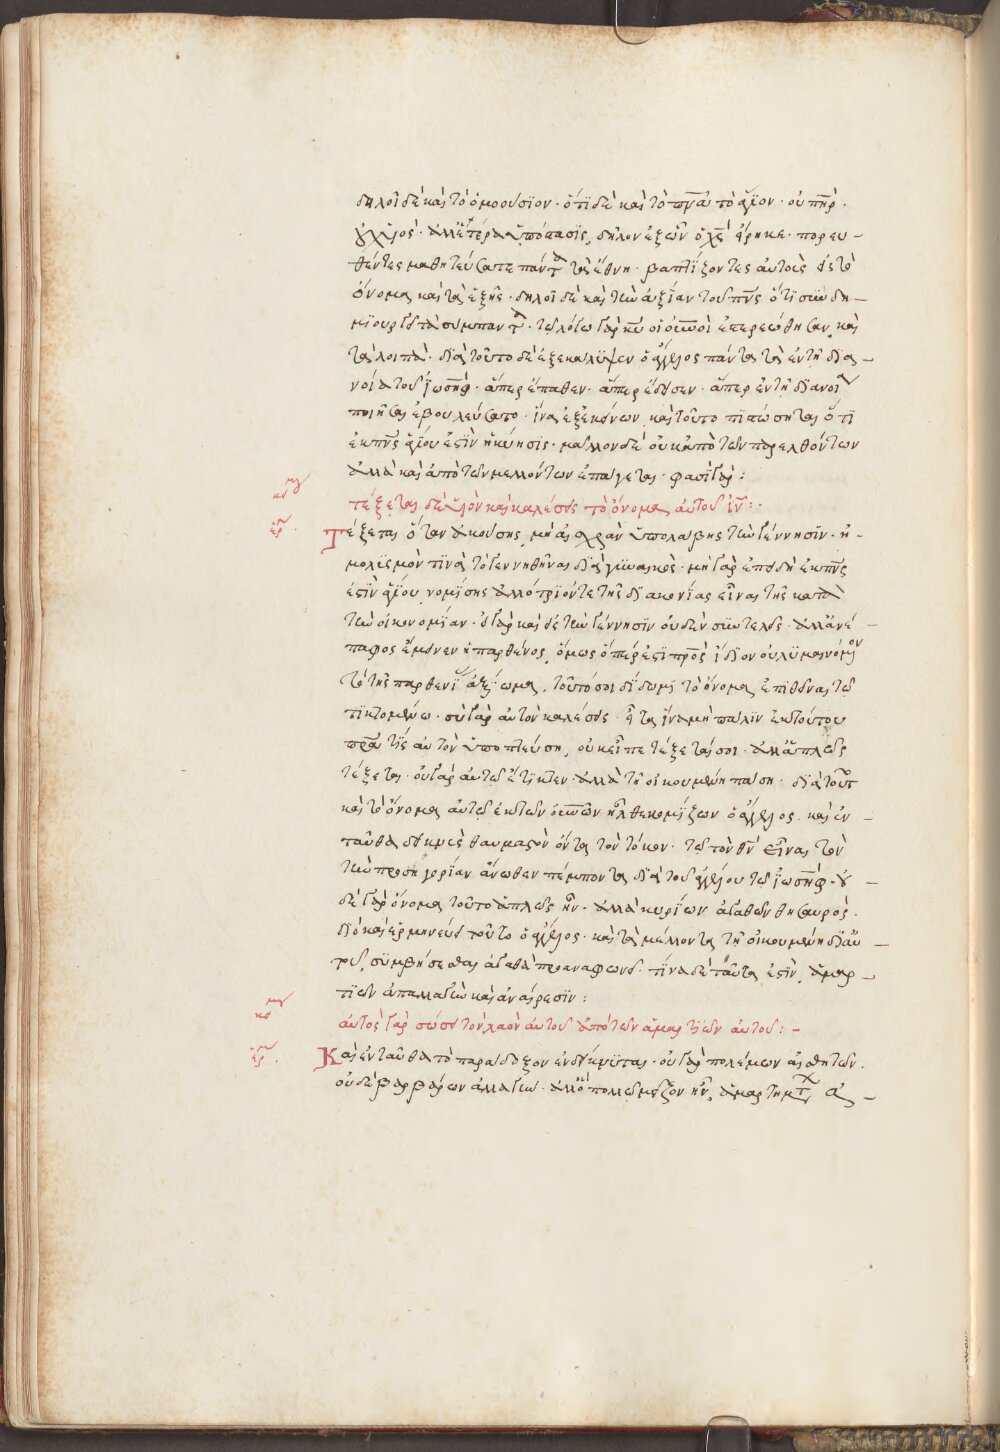 δηλοῖ δὲ καὶ τὸ ὁμοούσιον · ὅτι δὲ καὶ τὸ πνᾶ τὸ ἅγιον · οὐ πηρ ·
ἀλλ' ἑτέρα ὑπόστασις, δῆλον ἐξ ὧν ὁ χς εἴρηκε · πορευ –
θέντες μαθητεύσατε πάντα τὰ ἔθνη · βαπτίζοντες αὐτοὺς εἰς τὸ
ὄνομα καὶ τὰ ἑξῆς · δηλοῖ δὲ καὶ τὴν ἀξίαν τοῦ πνς ὅτι συν δη –
μιουργεῖ τὰ σύμπαντα · τῷ λόγω γὰρ κυ οἱ οὐνοὶ ἐστερεώθησαν, καὶ
τὰ λοιπὰ · διὰ τοῦτο δὲ ἐξεκάλυψεν ὁ ἄγγελος πάντα τὰ ἐν τῆ δια –
νοία τοῦ ἰωσὴφ · ἅπερ ἔπαθεν · ἅπερ ἔδεισεν · ἅπερ ἐν τῆ διανοία
ποιῆσαι ἐβουλεύσατο · ἵνα ἐξ ἐκείνων καὶ τοῦτο πιστώσηται ὅτι
ἐκ πνς ἁγίου ἐστὶν ἡ κύησις · μᾶλλον δὲ οὐκ ἀπὸ τῶν παρελθόντων
ἀλλὰ καὶ ἀπὸ τῶν μελλόντων ἐπάγεται · φησὶ γὰρ :
κει μγ
τέξεται δὲ υἱὸν καὶ καλέσεις τὸ ὄνομα αὐτοῦ ἰν : ·
ἑρμ ·
Τέξεται ὅταν ἀκούσης, μὴ αἰσχρὰν ὑπολάβης τὴν γέννησιν · ἢ –
μολϊσμόν τινα τὸ γεννηθῆναι διὰ γυναικὸς · μὴ γὰρ ἐπειδὴ ἐκ πνς
ἐστὶν ἁγίου, νομίσης ἀλλότριόν τε τῆς διακονίας εἶναι τῆς κατὰ
τὴν οἰκονομίαν · εἰ γὰρ καὶ εἰς τὴν γέννησιν οὐδὲν συντελεῖς · ἀλλ' ἀνέ –
παφος ἔμεινεν ἡ παρθένος, ὅμως ὅπερ ἐστὶ πρς ἴδιον οὐ λυμαινόμενον
τὸ τῆς παρθενίας ἀξίωμα, τοῦτό σοι δίδωμι τὸ ὄνομα ἐπιθεῖναι τῷ
τικτομένω · σὺ γὰρ αὐτὸν καλέσεις · εἶτα ἵνα μὴ πάλιν ἐκ τούτου
πρα τὶς αὐτὸν ὑποπτεύση, οὐκ εἶπε τέξεταί σοι · ἀλλ' ἁπλῶς
τέξεται · οὐ γὰρ αὐτῷ ἔτικτεν · ἀλλὰ τῆ οἰκουμένη πάση · διὰ τοῦτο
καὶ τὸ ὄνομα αὐτῷ ἐκ τῶν οὐνῶν ἦλθε κομίζων ὁ ἄγγελος · καὶ ἐν –
ταῦθα δεικνὺς θαυμαστὸν ὄντα τὸν τόκον · τῷ τὸν θν εἶναι τὸν
τὴν προσηγορίαν ἄνωθεν πέμποντα διὰ τοῦ ἀγγέλου τῷ ἰωσὴφ · οὐ –
δὲ γὰρ ὄνομα τοῦτο ἁπλῶς ἦν · ἀλλὰ μυρίων ἀγαθῶν θησαυρὸς ·
διὸ καὶ ἑρμηνεύει τοῦτο ὁ ἄγγελος · καὶ τὰ μέλλοντα τῆ οἰκουμένη δι' αὐ –
τοῦ, συμβήσεσθαι ἀγαθὰ προαναφωνεῖ · τίνα δὲ ταῦτα ἐστὶν, ἁμαρ –
τιῶν ἀπαλλαγὴ καὶ ἀναίρεσιν :
κει μγ
αὐτὸς γὰρ σώσει τὸν λαὸν αὐτοῦ ἀπὸ τῶν ἁμαρτιῶν αὐτοῦ : –
ἑρμ ·
Καὶ ἐνταῦθα τὸ παράδοξον ἐνδείκνυται · οὐ γὰρ πολέμων αἰσθητῶν ·
οὐδὲ βαρβάρων ἀλλαγὴ · ἀλλ' ὃ πολλῷ μεῖζον ἦν, ἁμαρτημάτων ἀ –